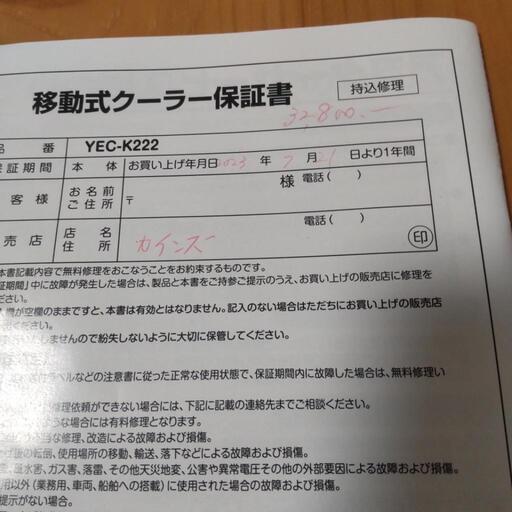 移動式クーラー保証書
持込修理
32,800.—
品番 YEC-K222
保証期間 本体 お買い上げ年月日 2023年 7月21日より1年間
客様 お名前 ご住所 様 電話( )
〒
売店 店名 住所 カインズ 電話( )
印
本書記載内容で無料修理をおこなうことをお約束するものです。
証期間」中に故障が発生した場合は、製品と本書をご持参ご提示のうえ、お買い上げの販売店に修理を
ださい。
欄が空欄のままですと、本書は有効とはなりません。記入のない場合はただちにお買い上げの販売店
ください。
いたしませんので紛失しないように大切に保管してください。
ラベルなどの注意書に従った正常な使用状態で、保証期間内に故障した場合は、無料修理い
修理依頼ができない場合には、下記に記載の連絡先までご相談ください。
ような場合には有料修理となります。
当な修理、改造による故障および損傷。
げ後の転倒、使用場所の移動、輸送、落下などによる故障および損傷。
風水害、ガス害、落雷、その他天災地変、公害や異常電圧その他の外部要因による故障および損傷。
用以外(業務用、車両、船舶への搭載)に使用された場合の故障および損傷。
提示がない場合。